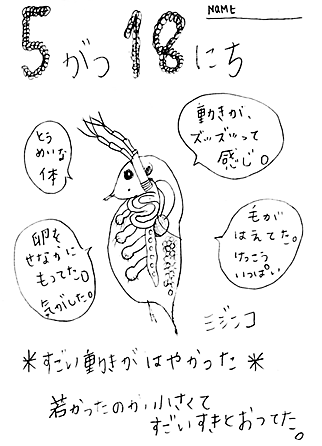 NAME
5がつ18にち
とう
めいな
体
動きが、
ズッズッって
感じ。
卵を
せなかに
もってた。
気がした。
毛が
はえてた。
けっこう
いっぱい
ミジンコ
*すごい動きがはやかった*
若かったのか小さくて
すごいすきとおってた。